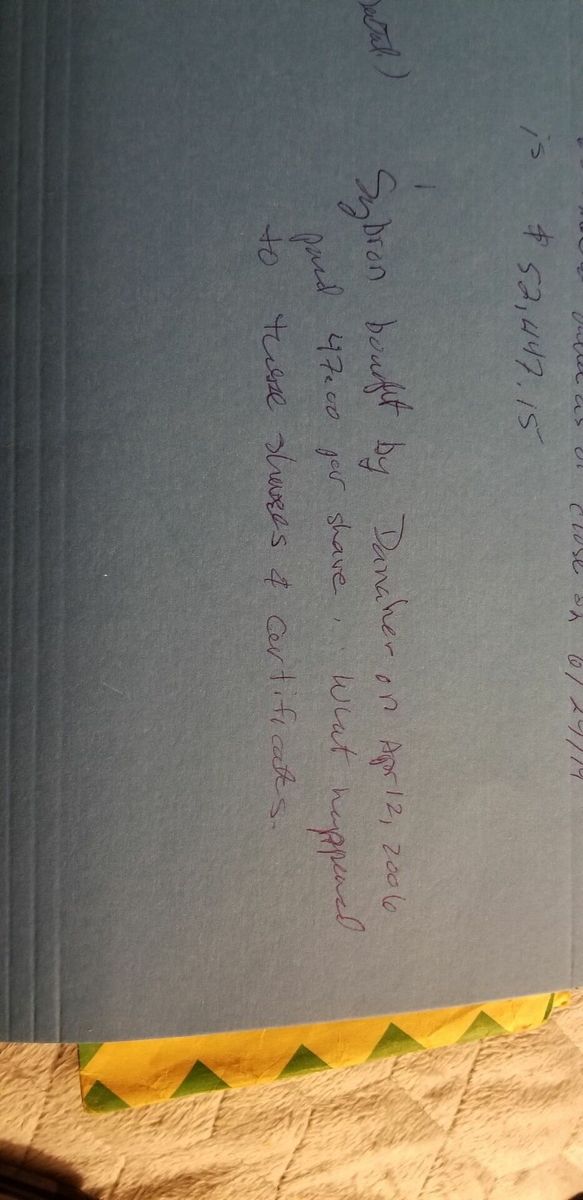 as of close on
is $ 52,447.15
Sybron bought by Danaher on Apr 12, 2006
paid 47.00 per share, What happened
to these shares & certificates.